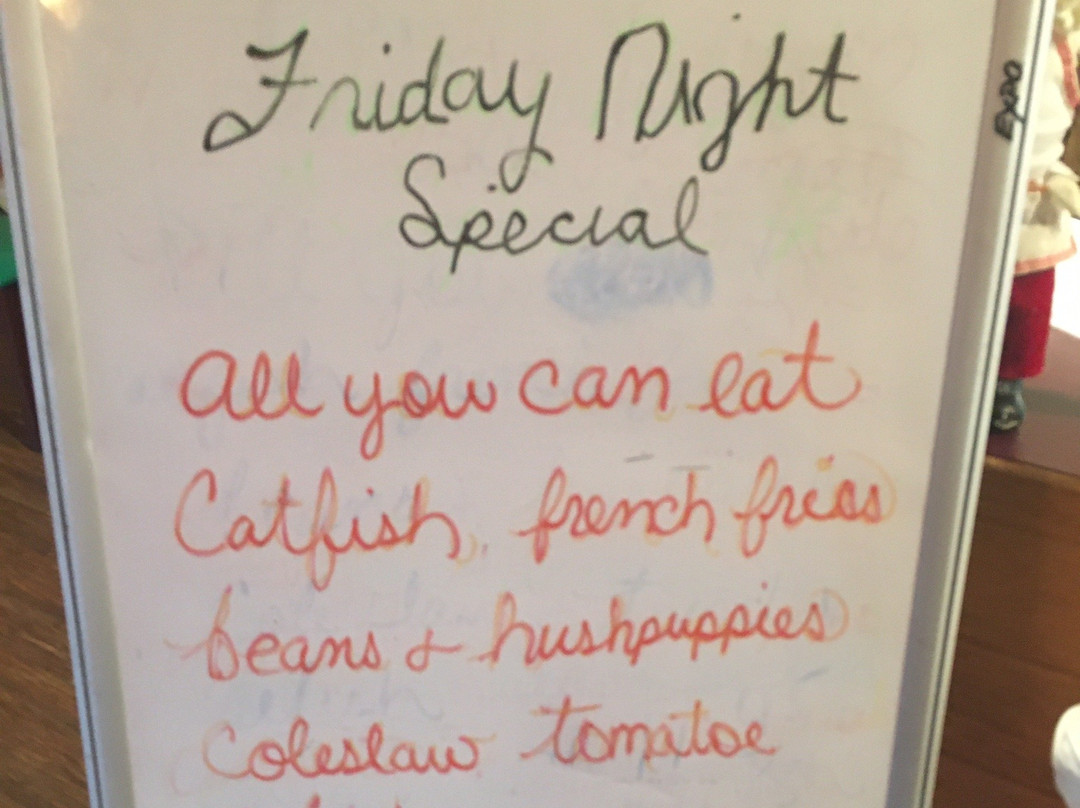 Friday Night
Special
all you can eat
Catfish, french fries
beans & hushpuppies
Coleslaw tomatoe
EXPO